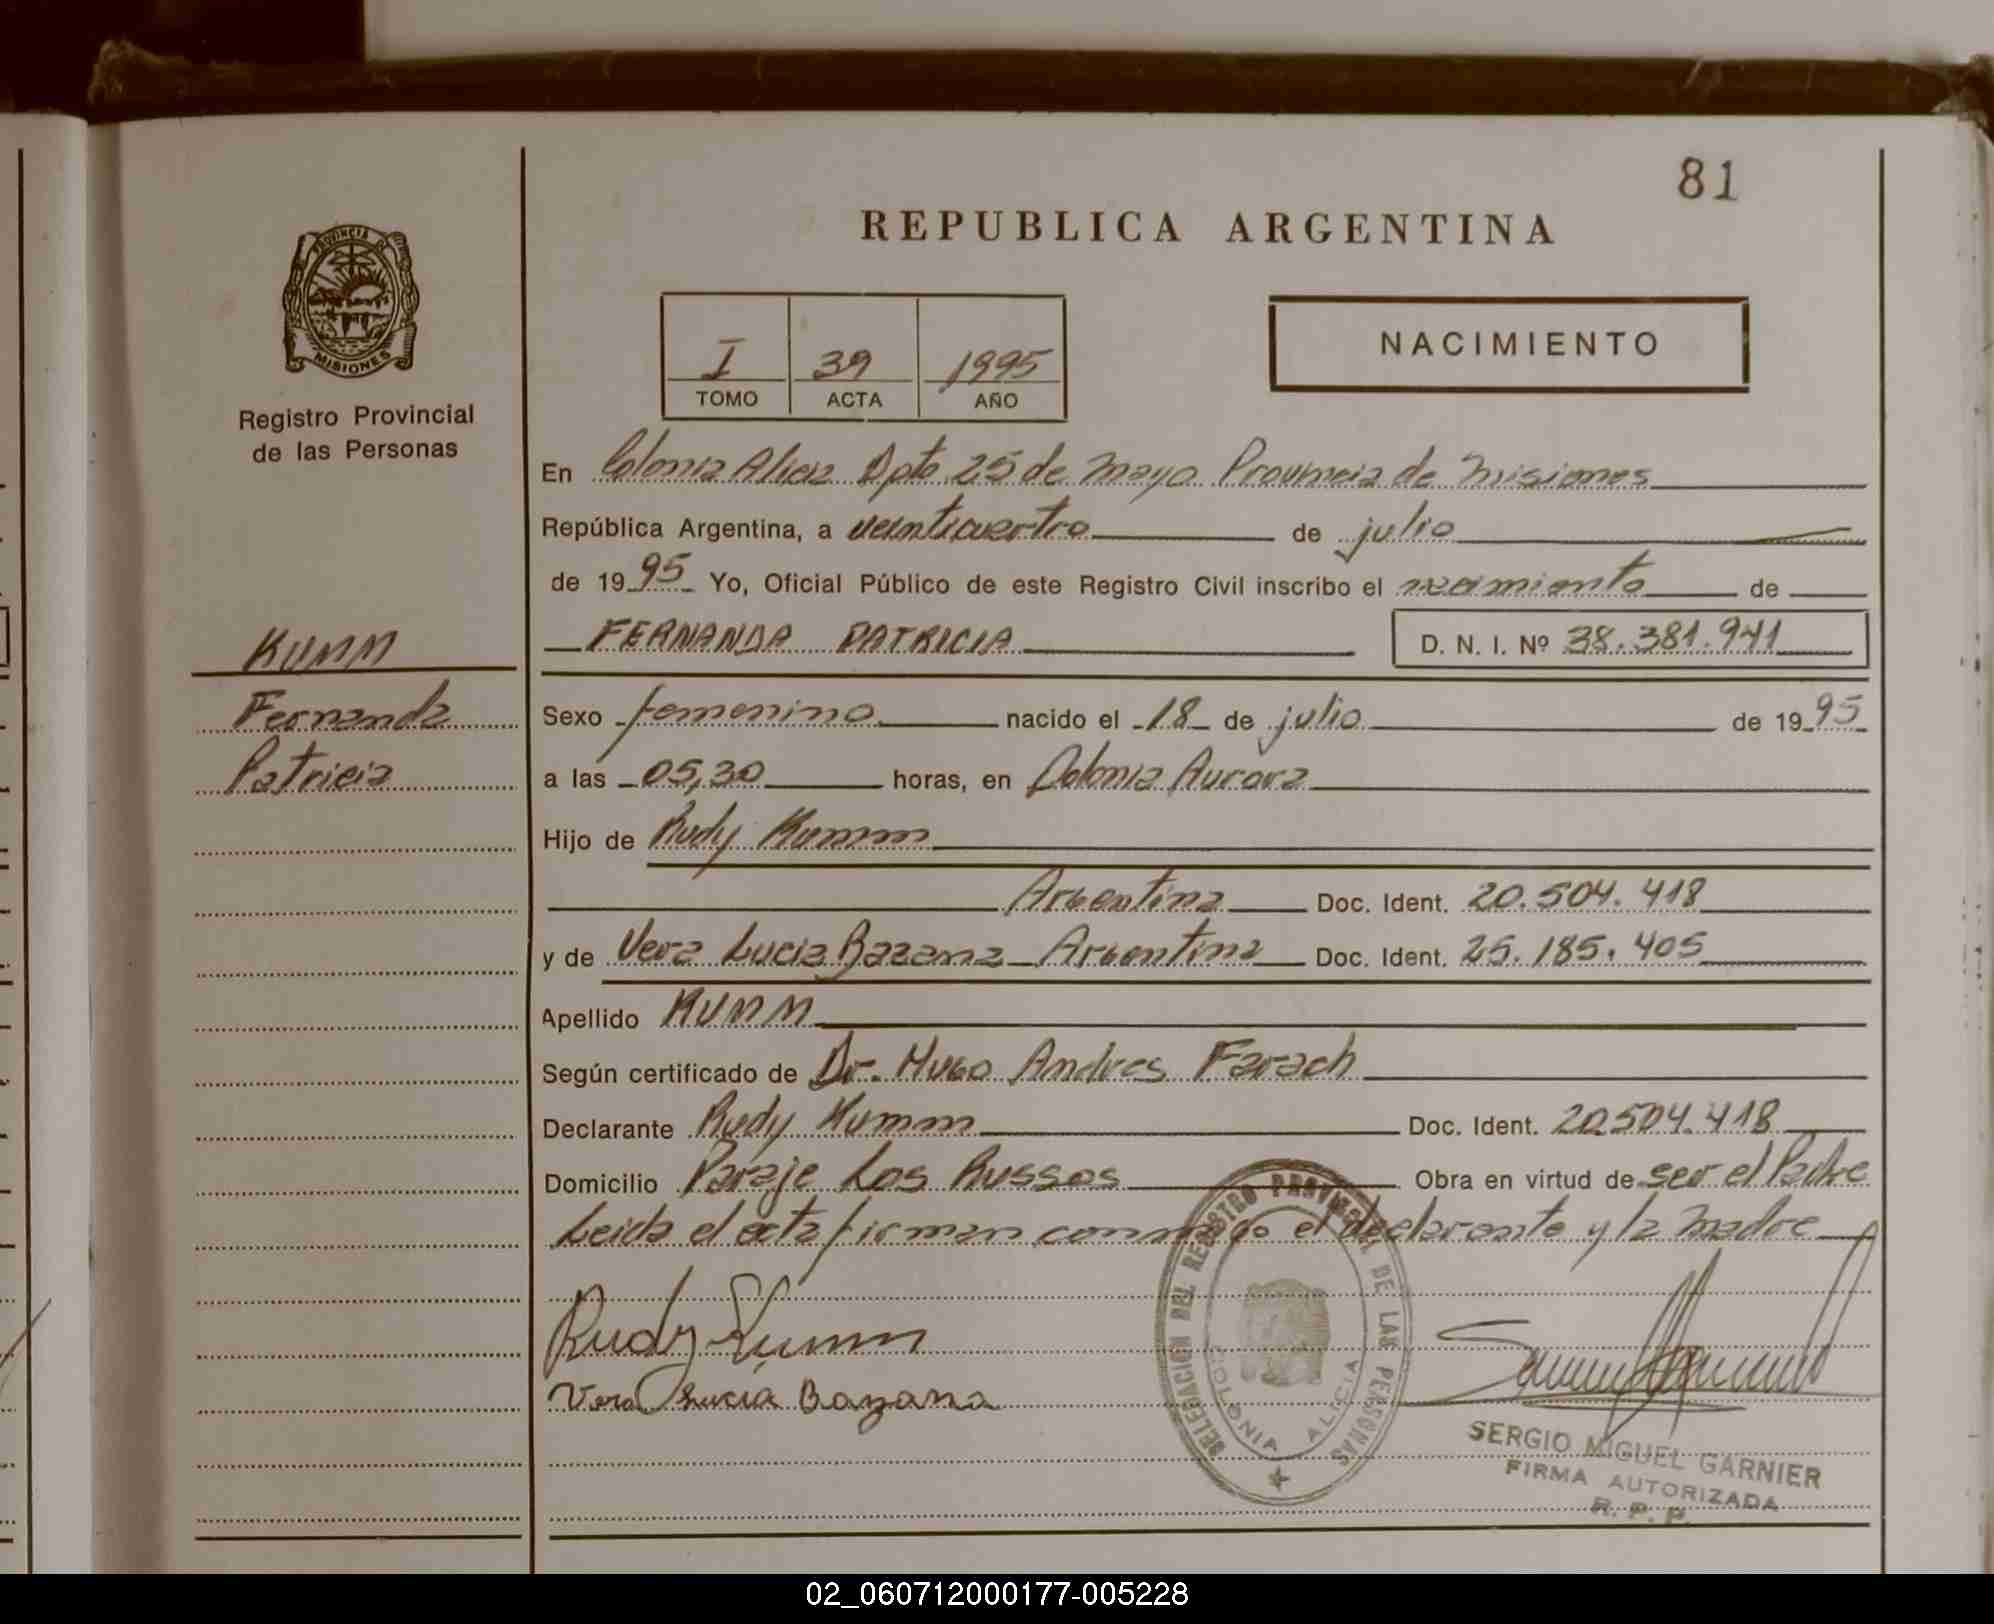 81
REPUBLICA ARGENTINA
PROVINCIA DE
MISIONES
Registro Provincial
de las Personas
I 39 1995
TOMO ACTA AÑO
NACIMIENTO
En Colonia Alicia Dpto 25 de Mayo Provincia de Misiones
República Argentina, a veinticuatro de julio
de 1995 Yo, Oficial Público de este Registro Civil inscribo el nacimiento de
KUMM
FERNANDA PATRICIA D. N. I. Nº 38.381.941
Fernanda
Sexo femenino nacido el 18 de julio de 1995
Patricia
a las 05,30 horas, en Colonia Aurora
Hijo de Rudy Kumm
Argentina Doc. Ident. 20.504.418
y de Vera Lucia Bazana Argentina Doc. Ident. 25.185.405
Apellido KUMM
Según certificado de Dr. Hugo Andres Farach
Declarante Rudy Kumm Doc. Ident. 20.504.418
Domicilio Paraje Los Russos Obra en virtud de ser el Padre
Leida el acta firman conmigo el declarante y la madre
Rudy Kumm
Vera Lucia Bazana
DELEGACION DEL REGISTRO PROVINCIAL DE LAS PERSONAS
COLONIA ALICIA
SERGIO MIGUEL GARNIER
FIRMA AUTORIZADA
R. P. P.
02_060712000177-005228